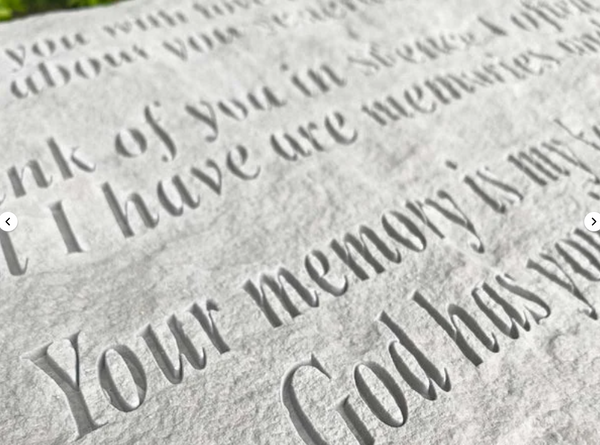 you with love
about you
nk of you in silence I often
I have are memories
Your memory is my
God has you